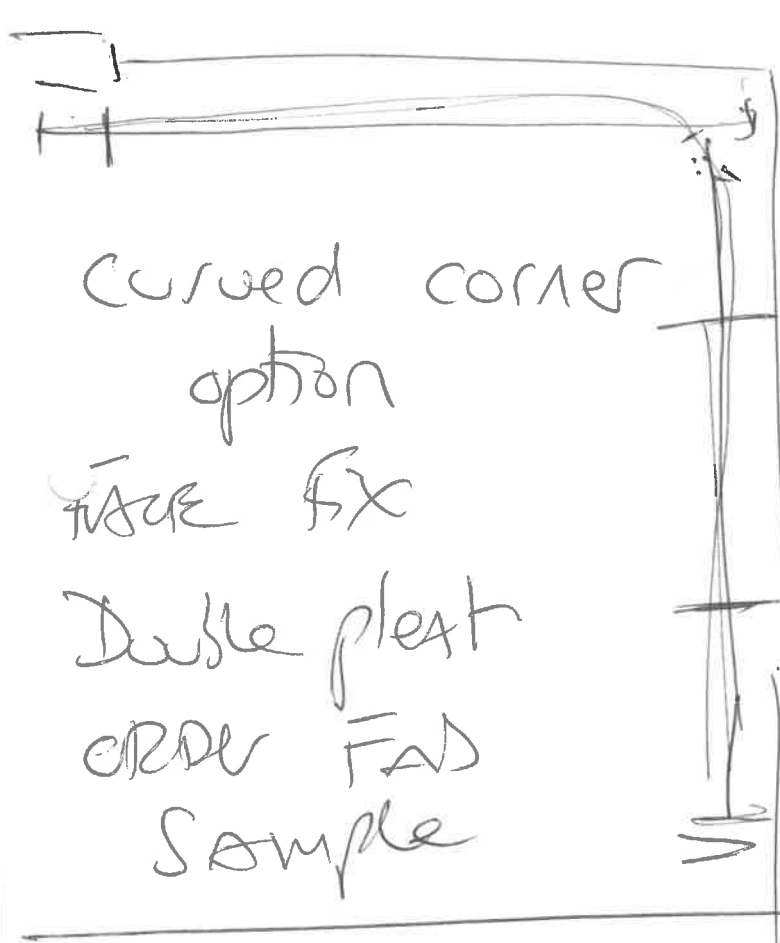 Curved corner
option
FACE FIX
Double pleat
ORDER FAB
Sample